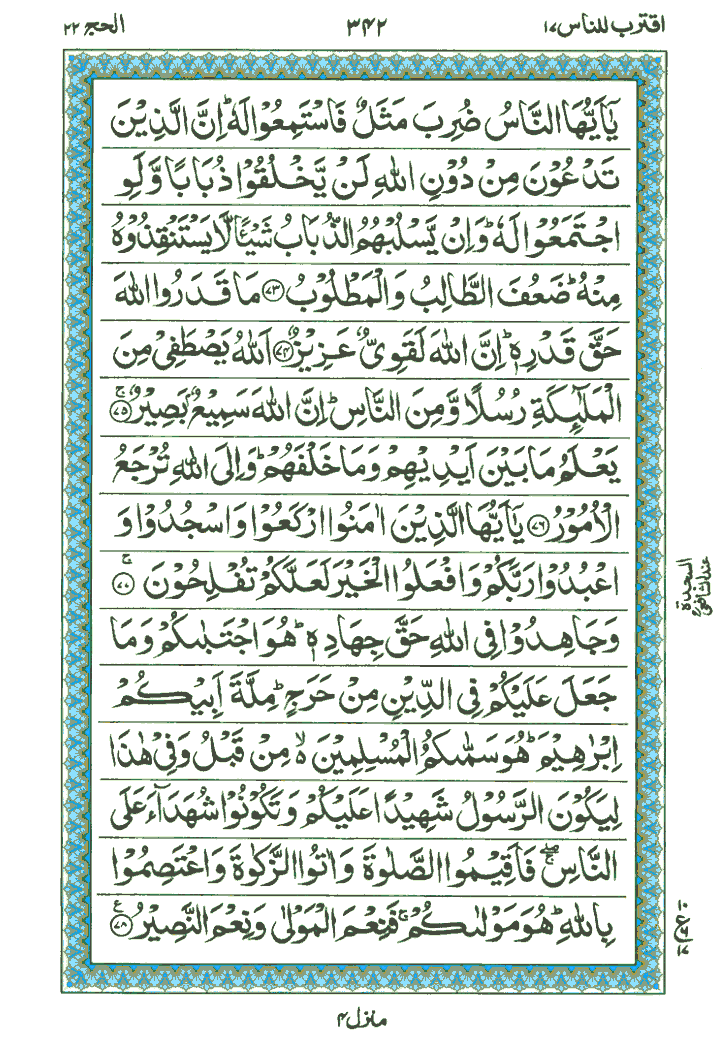 اقترب للناس ۱۷
۳۴۲
الحج ۲۲
يٰۤاَيُّهَا النَّاسُ ضُرِبَ مَثَلٌ فَاسْتَمِعُوْا لَهٗ ؕ اِنَّ الَّذِيْنَ
تَدْعُوْنَ مِنْ دُوْنِ اللّٰهِ لَنْ يَّخْلُقُوْا ذُبَابًا وَّلَوِ
اجْتَمَعُوْا لَهٗ ؕ وَاِنْ يَّسْلُبْهُمُ الذُّبَابُ شَيْـًٔا لَّا يَسْتَنْقِذُوْهُ
مِنْهُ ؕ ضَعُفَ الطَّالِبُ وَالْمَطْلُوْبُ ﴿۷۳﴾ مَا قَدَرُوا اللّٰهَ
حَقَّ قَدْرِهٖ ؕ اِنَّ اللّٰهَ لَقَوِيٌّ عَزِيْزٌ ﴿۷۴﴾ اَللّٰهُ يَصْطَفِيْ مِنَ
الْمَلٰٓئِكَةِ رُسُلًا وَّمِنَ النَّاسِ ؕ اِنَّ اللّٰهَ سَمِيْعٌۢ بَصِيْرٌ ۚ ﴿۷۵﴾
يَعْلَمُ مَا بَيْنَ اَيْدِيْهِمْ وَمَا خَلْفَهُمْ ؕ وَاِلَى اللّٰهِ تُرْجَعُ
الْاُمُوْرُ ﴿۷۶﴾ يٰۤاَيُّهَا الَّذِيْنَ اٰمَنُوا ارْكَعُوْا وَاسْجُدُوْا وَ
اعْبُدُوْا رَبَّكُمْ وَافْعَلُوا الْخَيْرَ لَعَلَّكُمْ تُفْلِحُوْنَ ۚ ﴿۷۷﴾
السجدة
عند الشافعی
وَجَاهِدُوْا فِي اللّٰهِ حَقَّ جِهَادِهٖ ؕ هُوَ اجْتَبٰىكُمْ وَمَا
جَعَلَ عَلَيْكُمْ فِي الدِّيْنِ مِنْ حَرَجٍ ؕ مِلَّةَ اَبِيْكُمْ
اِبْرٰهِيْمَ ؕ هُوَ سَمّٰىكُمُ الْمُسْلِمِيْنَ ۙ۬ مِنْ قَبْلُ وَفِيْ هٰذَا
لِيَكُوْنَ الرَّسُوْلُ شَهِيْدًا عَلَيْكُمْ وَتَكُوْنُوْا شُهَدَآءَ عَلَى
النَّاسِ ۚۖ فَاَقِيْمُوا الصَّلٰوةَ وَاٰتُوا الزَّكٰوةَ وَاعْتَصِمُوْا
بِاللّٰهِ ؕ هُوَ مَوْلٰىكُمْ ۚ فَنِعْمَ الْمَوْلٰى وَنِعْمَ النَّصِيْرُ ﴿۷۸﴾ ع
منزل ۴